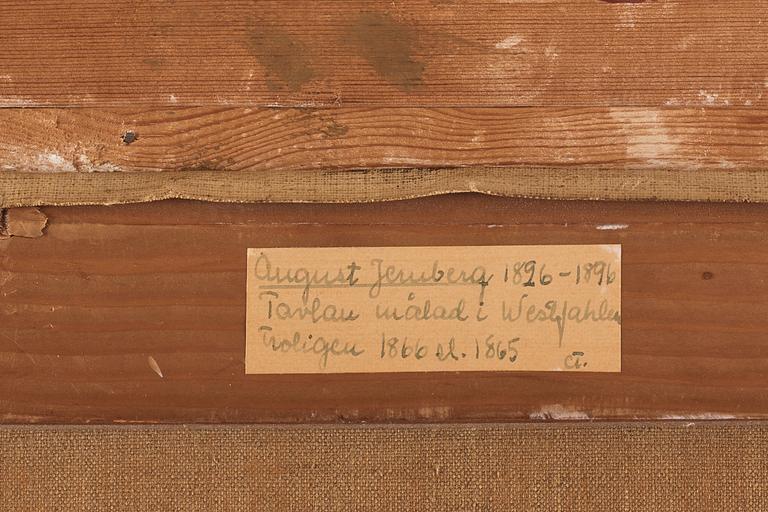 August Jernberg 1826-1896
Tavlan målad i Westfahlen
Troligen 1866 el. 1865